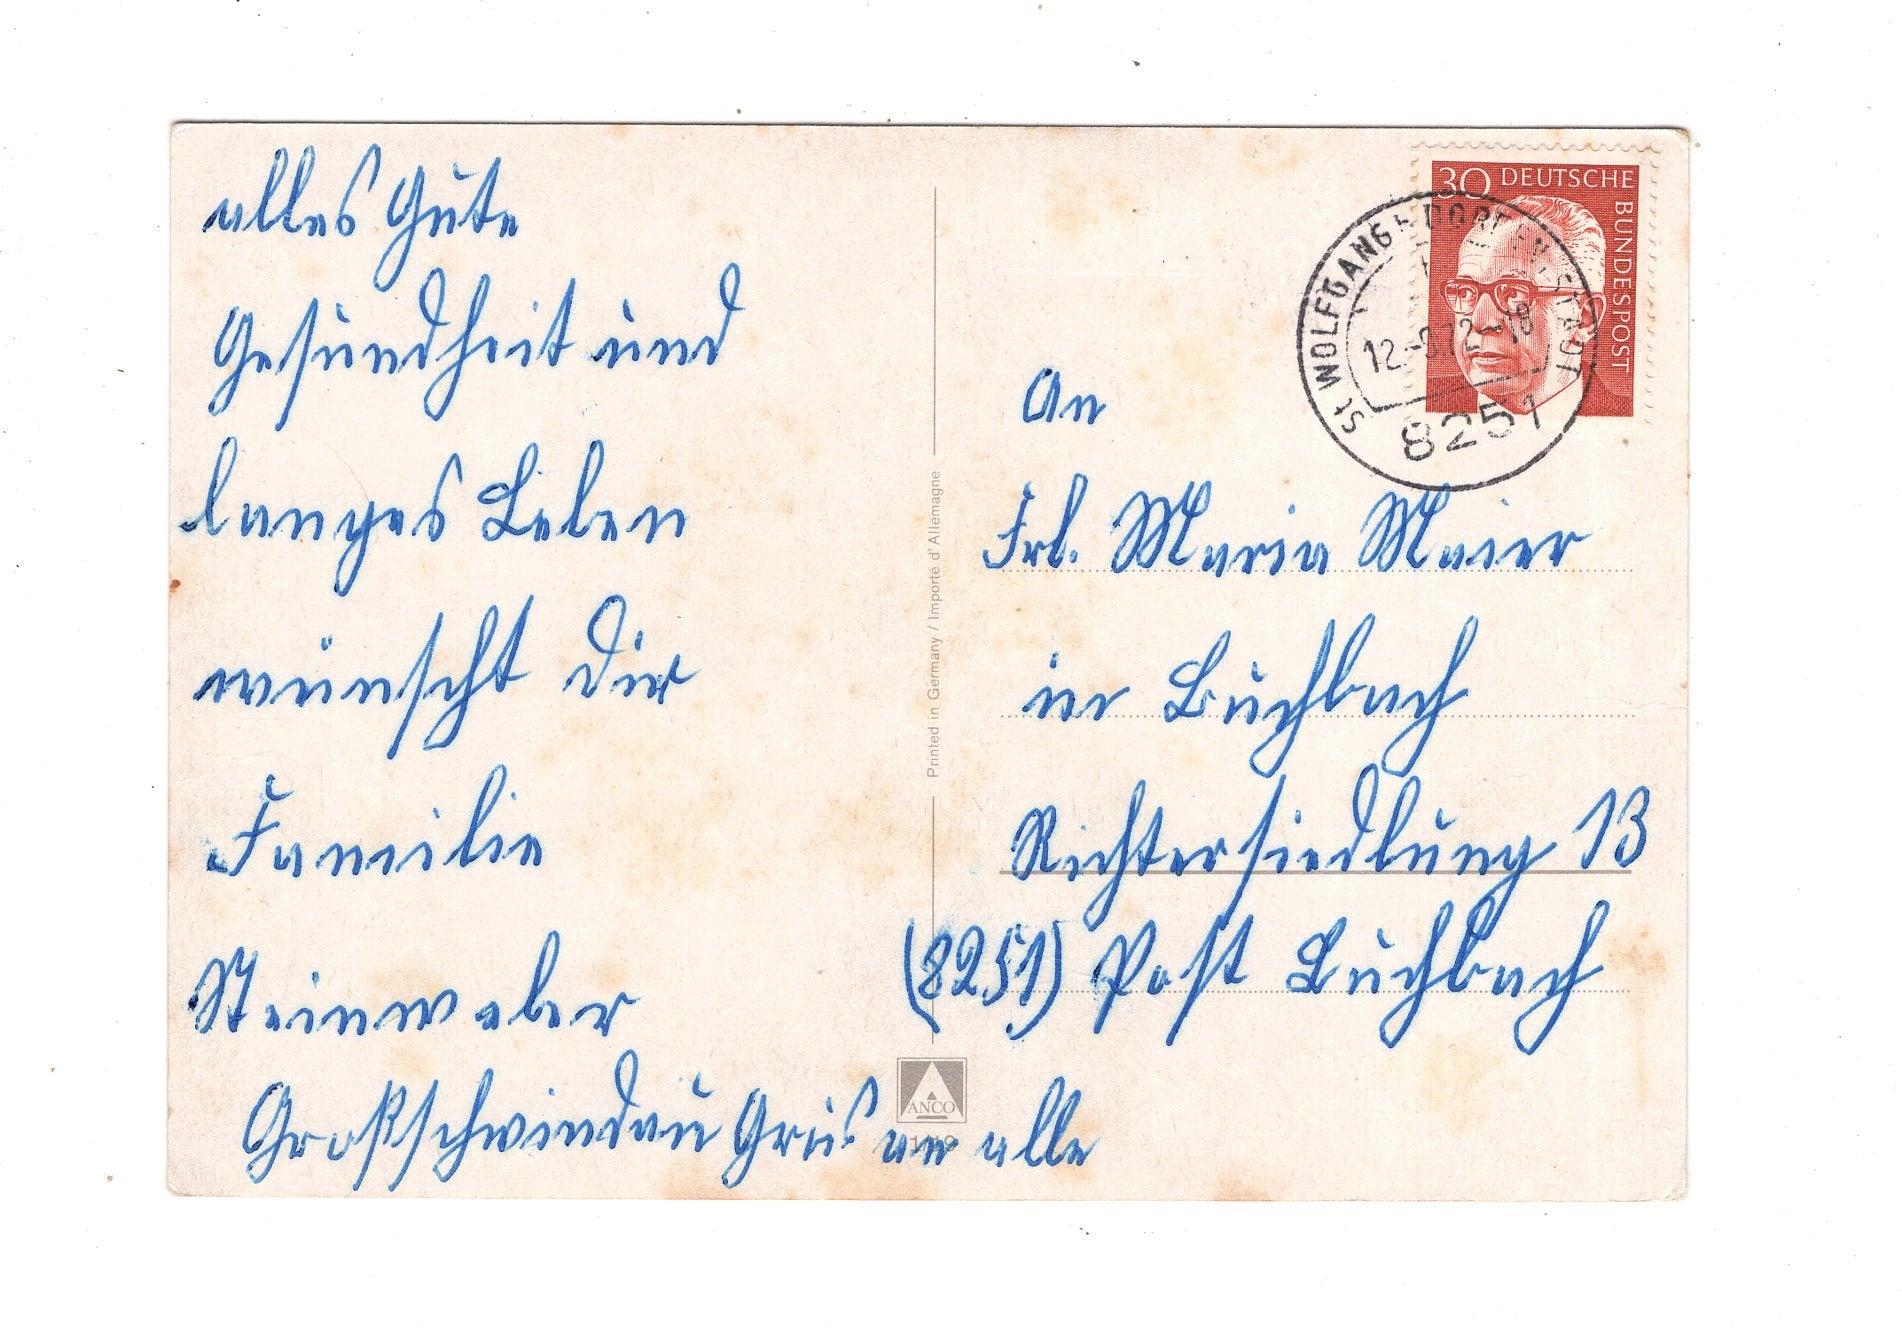 alles Gute
Gesundheit und
langes Leben
wünscht dir
Familie
Steinweber
Großschwindau Grüs an alle
Printed in Germany / Importe d'Allemagne
ANCO
30 DEUTSCHE BUNDESPOST
St WOLFGANG B DORFEN, STADT
12.-9.72-18
8251
An
Frl. Maria Maier
in Buchbach
Richtersiedlung 13
(8251) Post Buchbach